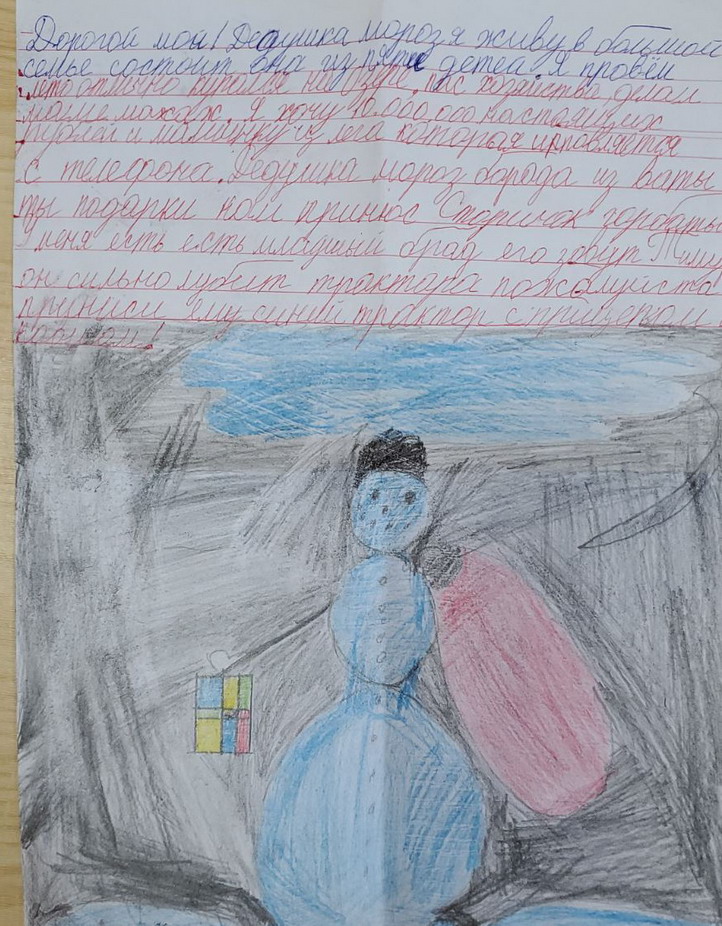 Дорогой мой! Дедушка мороз я живу в большой
семье состоит она из пяте детеа. Я провёл
лето отлично купался на озере, пас хозяйства, делал
маме масаж. Я хочу 10.000.000 настоящих
рублей и машинку из лего которая упровляется
с телефона. Дедушка мороз борода из ваты
ты подарки ном принёс Старичок горбаты
У меня есть есть младшый брад его зовут Тиму
он сильно любит трактара пожалуйста
приниси ему синий трактор с прицепом